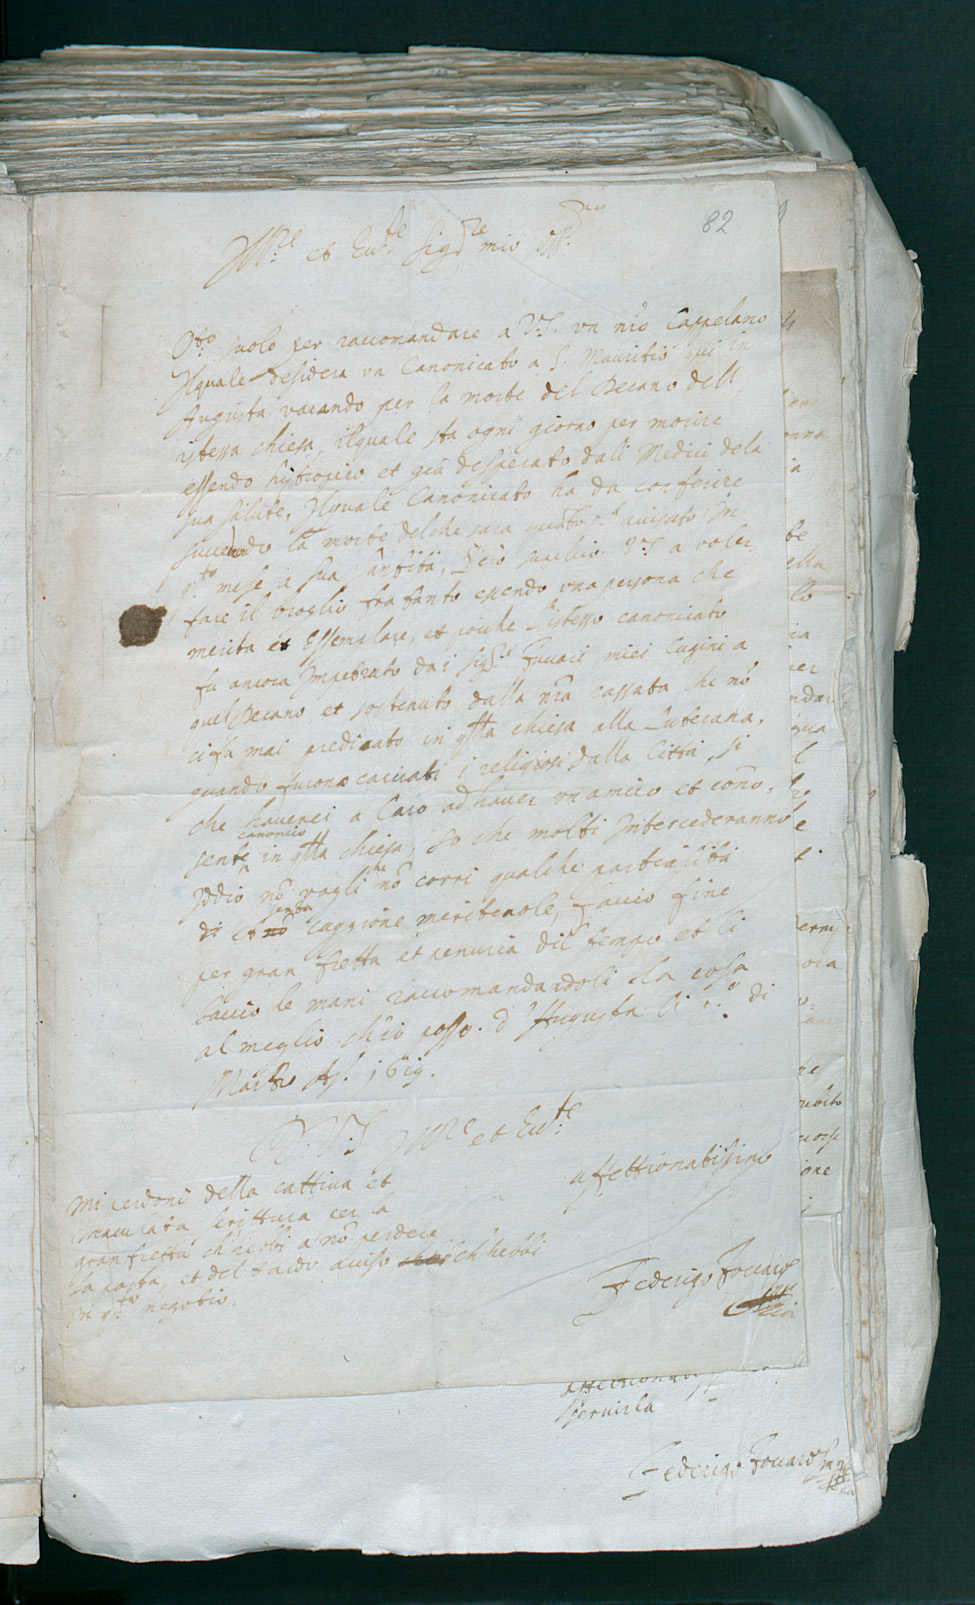 82
Ill.re et Ecc.te Sig.re mio oss.mo
Q.to solo per raccomandare a V.S. un nro Cappelano
Ilquale desidera un Canonicato a S. Mauritio qui in
Augusta vacando per la morte del Decano dell
istessa chiesa, ilquale sta ogni giorno per morire
essendo hÿdropico et già desperato dali Medici dela
sua salute, Ilquale Canonicato ha da conferire
succedendo la morte delche sara avisato In
q.to mese a sua santità, Però suplico V.S. a voler
fare il broglio fra tanto essendo una persona che
merita et Essemplare, et poiche l'istesso canonicato
fu ancora Impetrato da i Sig.ri Fuccari miei Cugini a
quel Decano et sostenuto dalla nra cassata che nō
ci fu mai predicato in q̃lla chiesa alla Luterana,
quando furono cacciati i religiosi dalla Città, si
che haverei a Caro ad haver un amico et cono-
sente canonico in q̃lla chiesa, so che molti Intercederanno
Iddio nō vogli che nō corri qualche partialità
di et nō senza caggione meritevole, faccio fine
per gran fretta et penuria dil tempo et li
bacio le mani raccomandandoli la cosa
al meglio ch'io posso. d'Augusta li di
Marzo A.o 1619.
D. V.S. Ill.re et Ecc.te
affettionatissimo
Mi perdoni della cattiva et
maculata scrittura per la
gran fretta ch'hebbi a nō perdere
la posta, et del tardo aviso ch'hebbi
in q.to negotio.
Federigo Foccaro
servirla
Federigo Foccaro